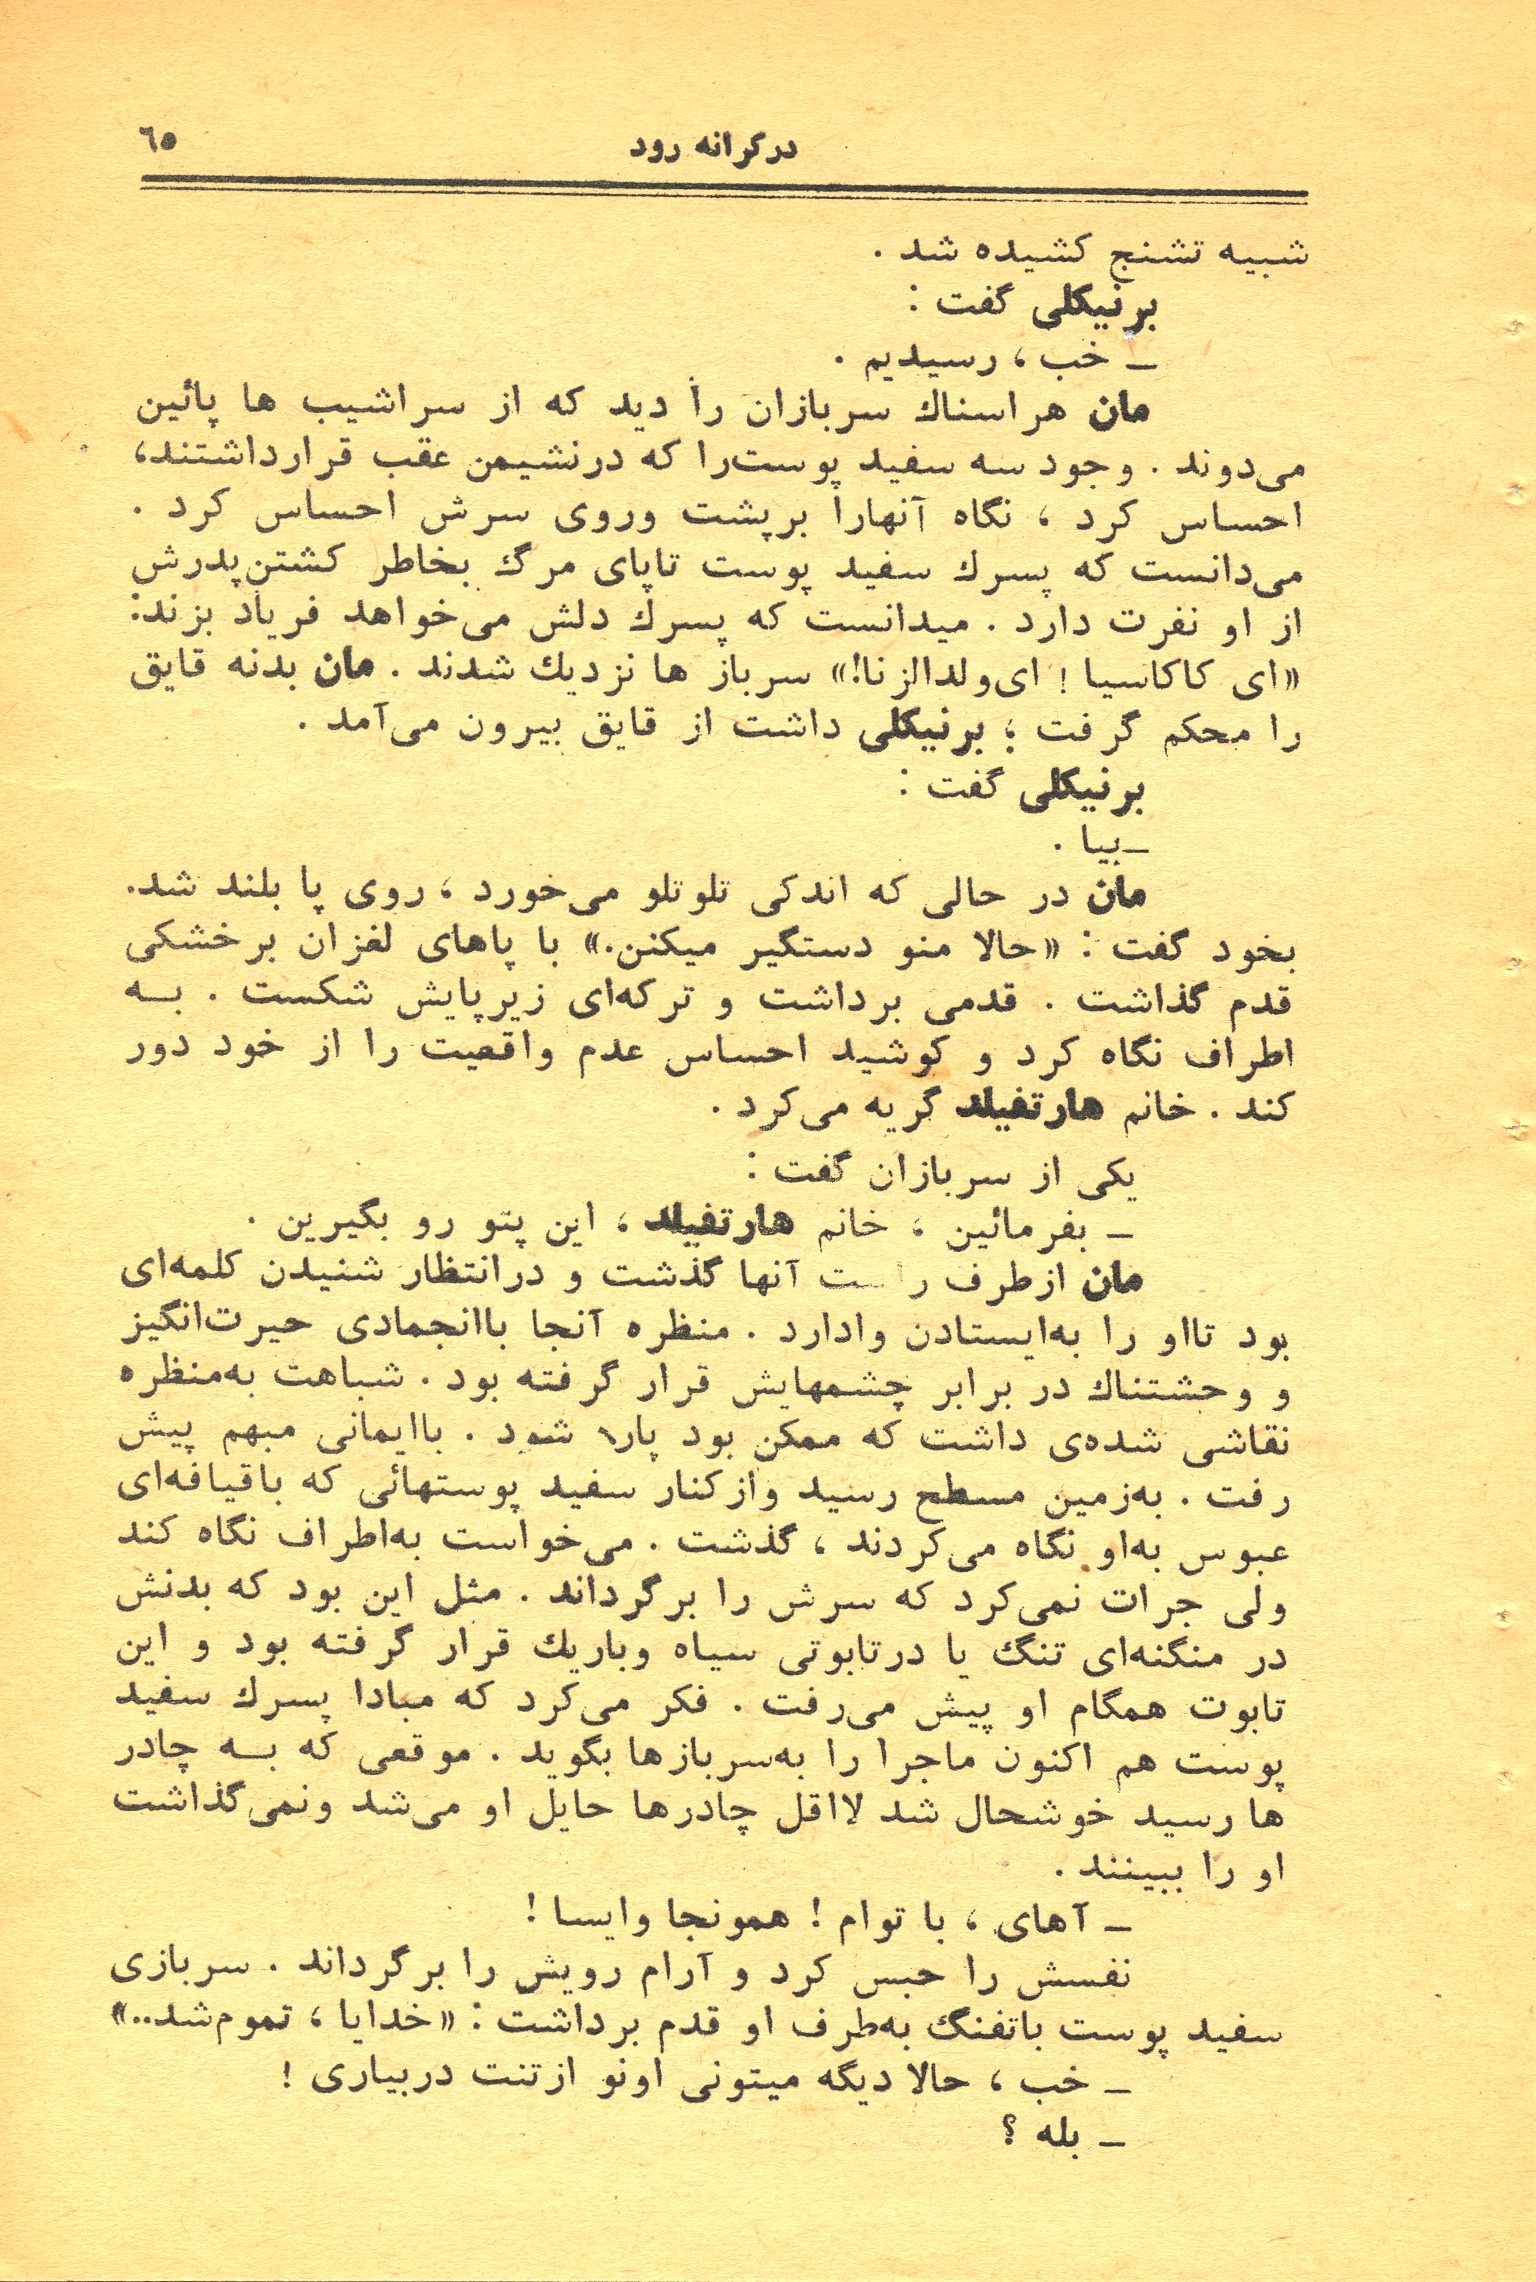 درکرانه رود
٦٥
شبیه تشنج کشیده شد .
برنیکلی گفت :
ــ خب ، رسیدیم .
مان هراسناك سربازان را دید که از سراشیب ها پائین
می‌دوند . وجود سه سفید پوست‌را که درنشیمن عقب قرارداشتند،
احساس کرد ، نگاه آنهارا برپشت وروی سرش احساس کرد .
می‌دانست که پسرك سفید پوست تاپای مرگ بخاطر کشتن‌پدرش
از او نفرت دارد . میدانست که پسرك دلش می‌خواهد فریاد بزند:
«ای کاکاسیا ! ای‌ولدالزنا!» سرباز ها نزدیك شدند . مان بدنه قایق
را محکم گرفت ؛ برنیکلی داشت از قایق بیرون می‌آمد .
برنیکلی گفت :
ــبیا .
مان در حالی که اندکی تلوتلو می‌خورد ، روی پا بلند شد.
بخود گفت : «حالا منو دستگیر میکنن.» با پاهای لغزان برخشکی
قدم گذاشت . قدمی برداشت و ترکه‌ای زیرپایش شکست . بــه
اطراف نگاه کرد و کوشید احساس عدم واقعیت را از خود دور
کند . خانم هارتفیلد گریه می‌کرد .
یکی از سربازان گفت :
ــ بفرمائین ، خانم هارتفیلد ، این پتو رو بگیرین .
مان ازطرف راست آنها گذشت و درانتظار شنیدن کلمه‌ای
بود تااو را به‌ایستادن وادارد . منظره آنجا باانجمادی حیرت‌انگیز
و وحشتناك در برابر چشمهایش قرار گرفته بود . شباهت به‌منظره
نقاشی شده‌ی داشت که ممکن بود پاره شود . باایمانی مبهم پیش
رفت . به‌زمین مسطح رسید وازکنار سفید پوستهائی که باقیافه‌ای
عبوس به‌او نگاه می‌کردند ، گذشت . می‌خواست به‌اطراف نگاه کند
ولی جرات نمی‌کرد که سرش را برگرداند . مثل این بود که بدنش
در منگنه‌ای تنگ یا درتابوتی سیاه وباریك قرار گرفته بود و این
تابوت همگام او پیش می‌رفت . فکر می‌کرد که مبادا پسرك سفید
پوست هم اکنون ماجرا را به‌سربازها بگوید . موقعی که بــه چادر
ها رسید خوشحال شد لااقل چادرها حایل او می‌شد ونمی‌گذاشت
او را ببینند .
ــ آهای ، با توام ! همونجا وایسا !
نفسش را حبس کرد و آرام رویش را برگرداند . سربازی
سفید پوست باتفنگ به‌طرف او قدم برداشت : «خدایا ، تموم‌شد..»
ــ خب ، حالا دیگه میتونی اونو ازتنت دربیاری !
ــ بله ؟